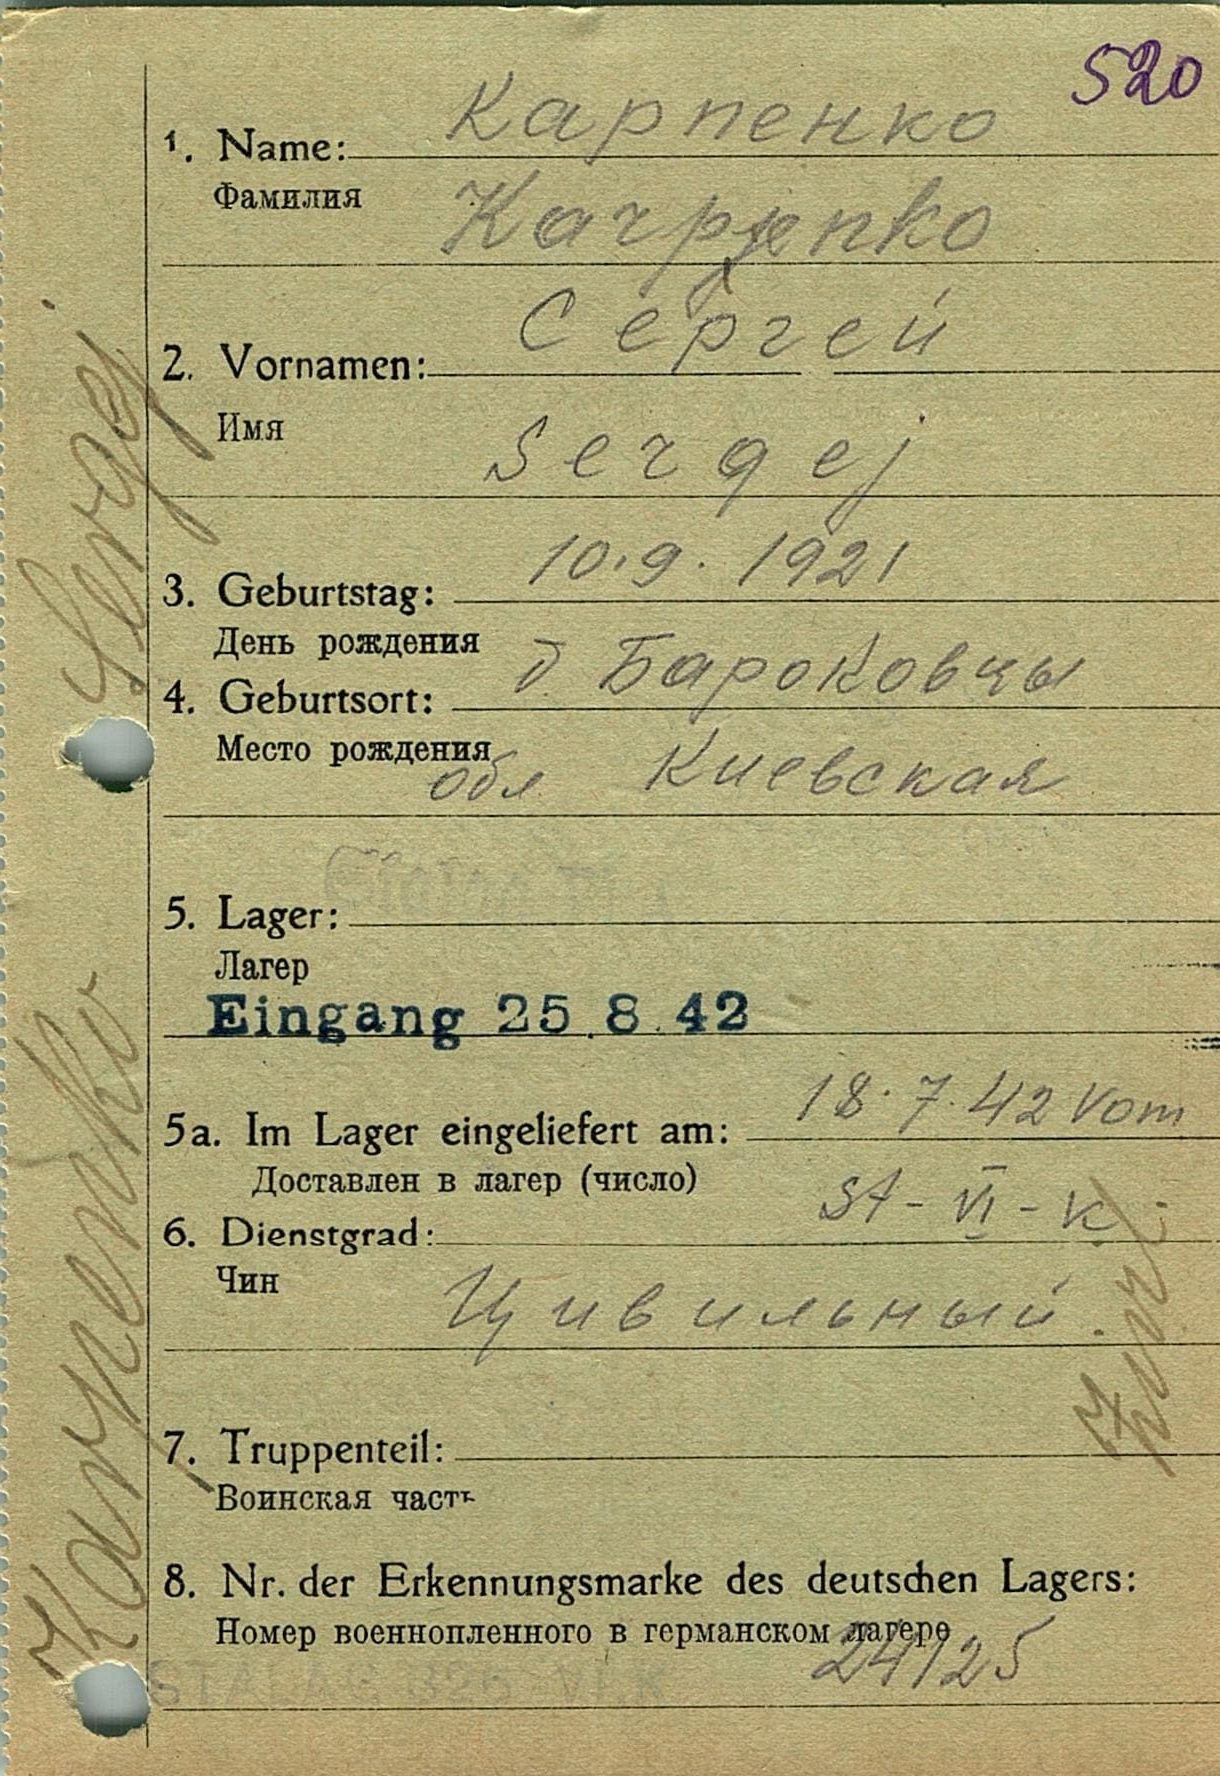 520
1. Name: Карпенко
Фамилия Karpenko
2. Vornamen: Сергей
Имя Sergej
3. Geburtstag: 10.9.1921
День рождения
4. Geburtsort: д Бароковцы
Место рождения обл Киевская
5. Lager:
Лагер
Eingang 25.8.42
5a. Im Lager eingeliefert am: 18.7.42 vom
Доставлен в лагер (число)
6. Dienstgrad: St-VI-K.
Чин Цивильный.
7. Truppenteil:
Воинская часть
8. Nr. der Erkennungsmarke des deutschen Lagers:
Номер военнопленного в германском лагере 24125
STALAG 326 VI K
Karpenko Sergej